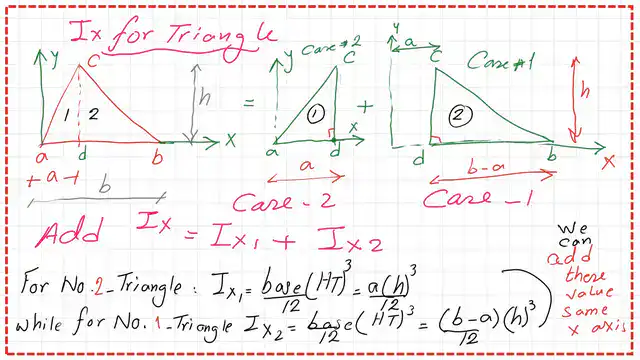 Ix for Triangle
y C 1 2 a d b x h
+ a + b
=
y Case #2 C 1 a d x a
Case-2
+
y a C Case #1 2 d b x h b-a
Case-1
Add Ix = Ix1 + Ix2
For No.2-Triangle: Ix1 = base(HT)^3/12 = a(h)^3/12
while for No.1-Triangle Ix2 = base(HT)^3/12 = (b-a)(h)^3/12
we
can
add
these
value
same
x axis